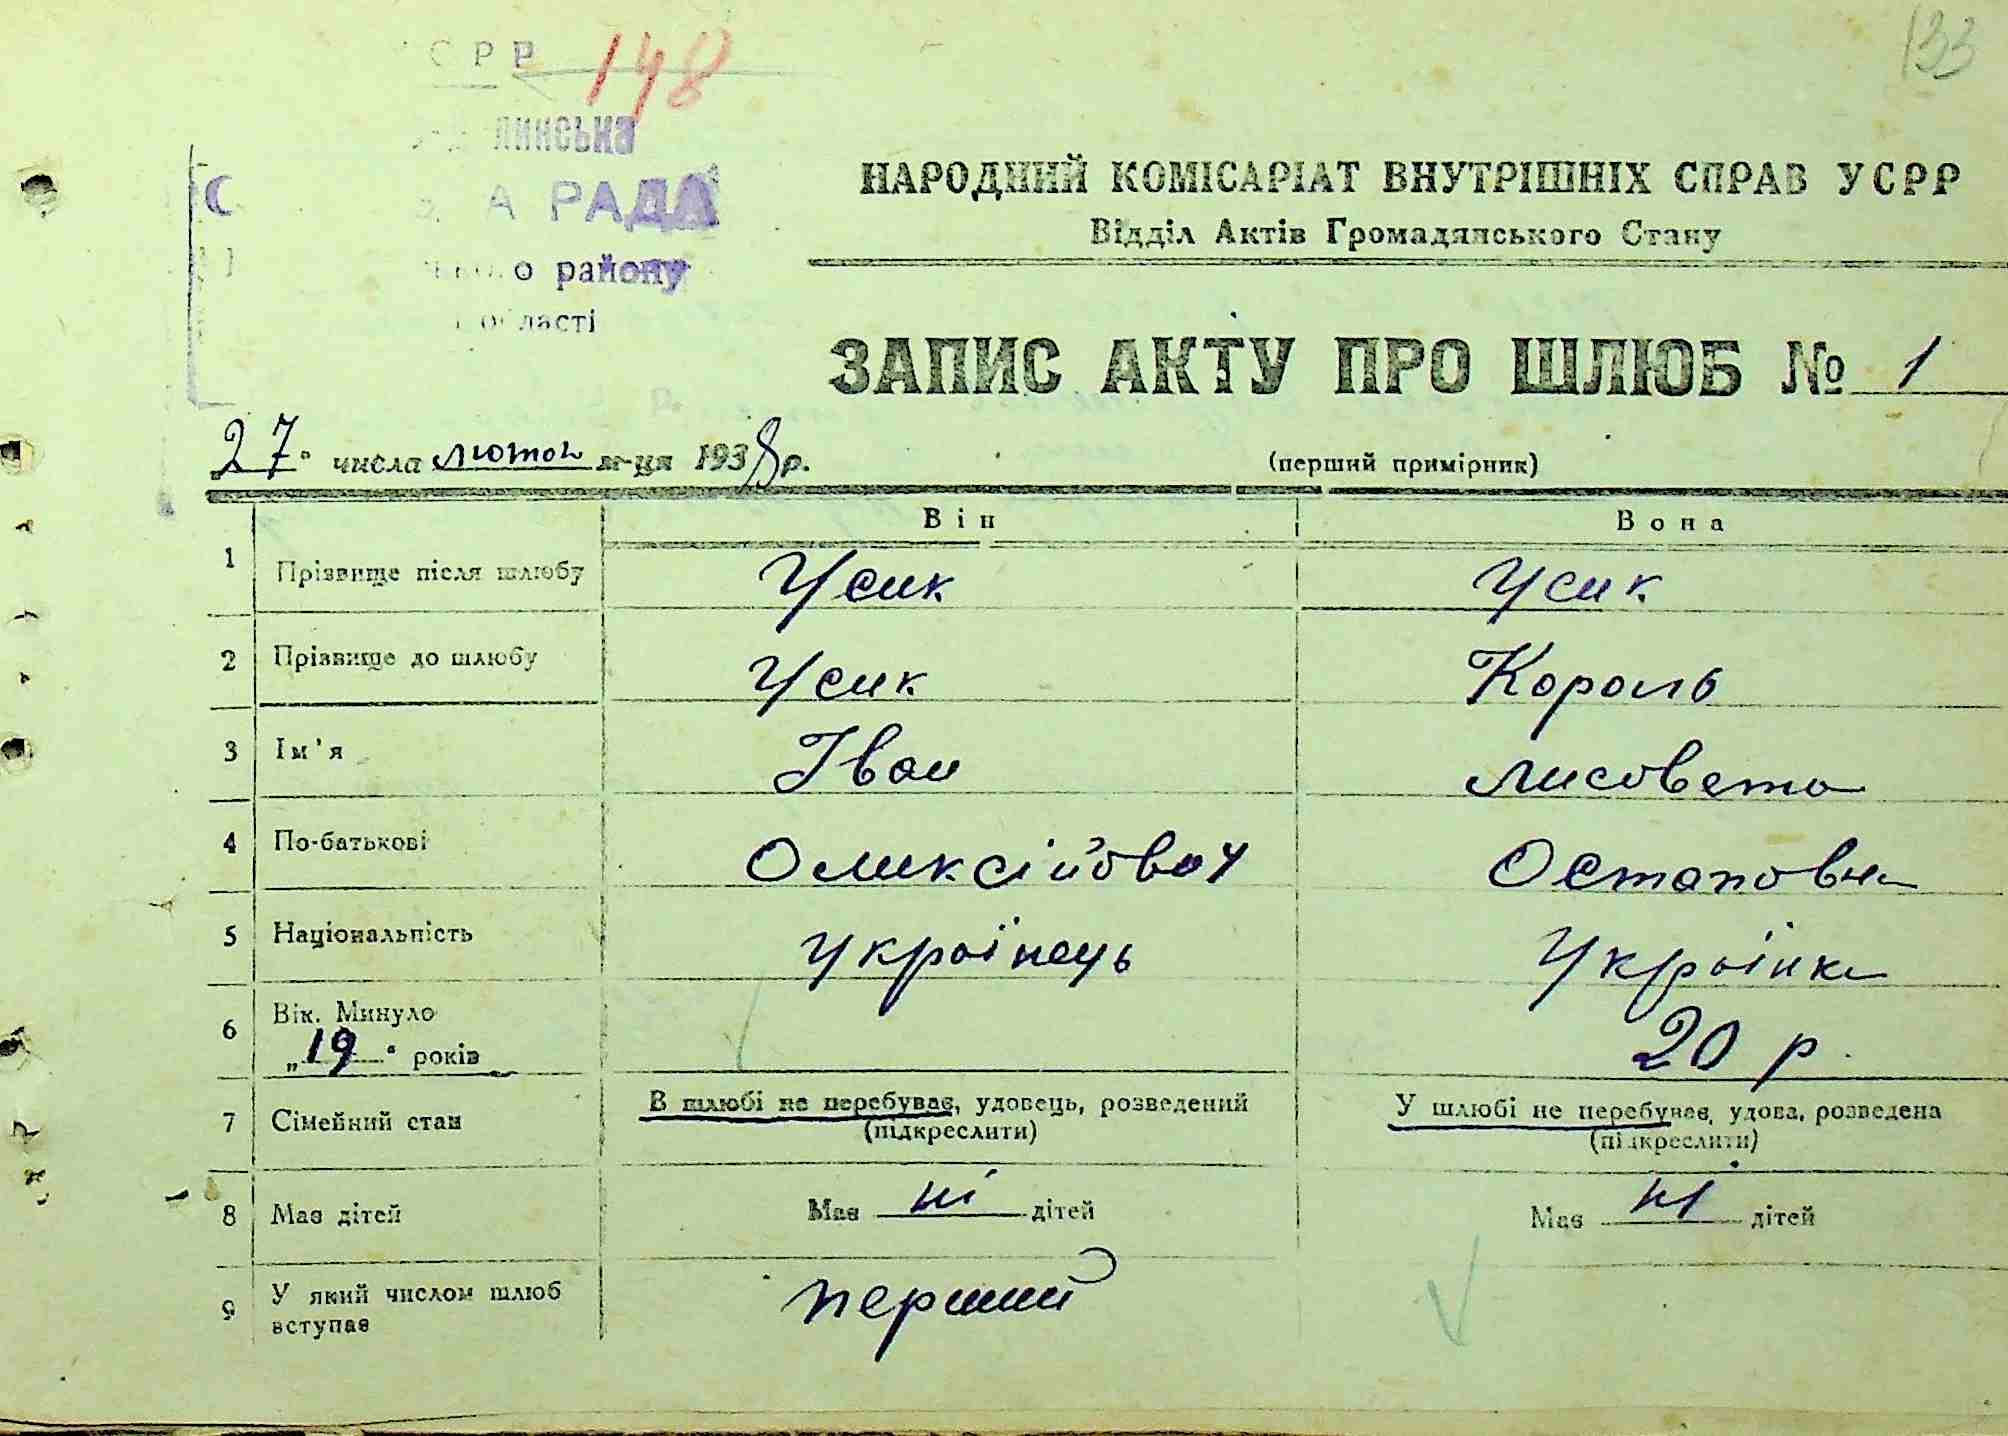 СРР
148
133
линська
А РАДА
району
області
НАРОДНИЙ КОМІСАРІАТ ВНУТРІШНІХ СПРАВ УСРР
Відділ Актів Громадянського Стану
ЗАПИС АКТУ ПРО ШЛЮБ № 1
27 числа лютого м-ця 1938 р.
(перший примірник)
Він Вона
1 Прізвище після шлюбу Усик Усик
2 Прізвище до шлюбу Усик Король
3 Ім'я Іван Лисовета
4 По-батькові Оликсійович Остаповна
5 Національність Українець Українка
6 Вік. Минуло
„19“ років 20 р.
7 Сімейний стан В шлюбі не перебуває, удовець, розведений У шлюбі не перебуває, удова, розведена
(підкреслити) (підкреслити)
8 Має дітей Має ні дітей Має ні дітей
9 У який числом шлюб вступає перший